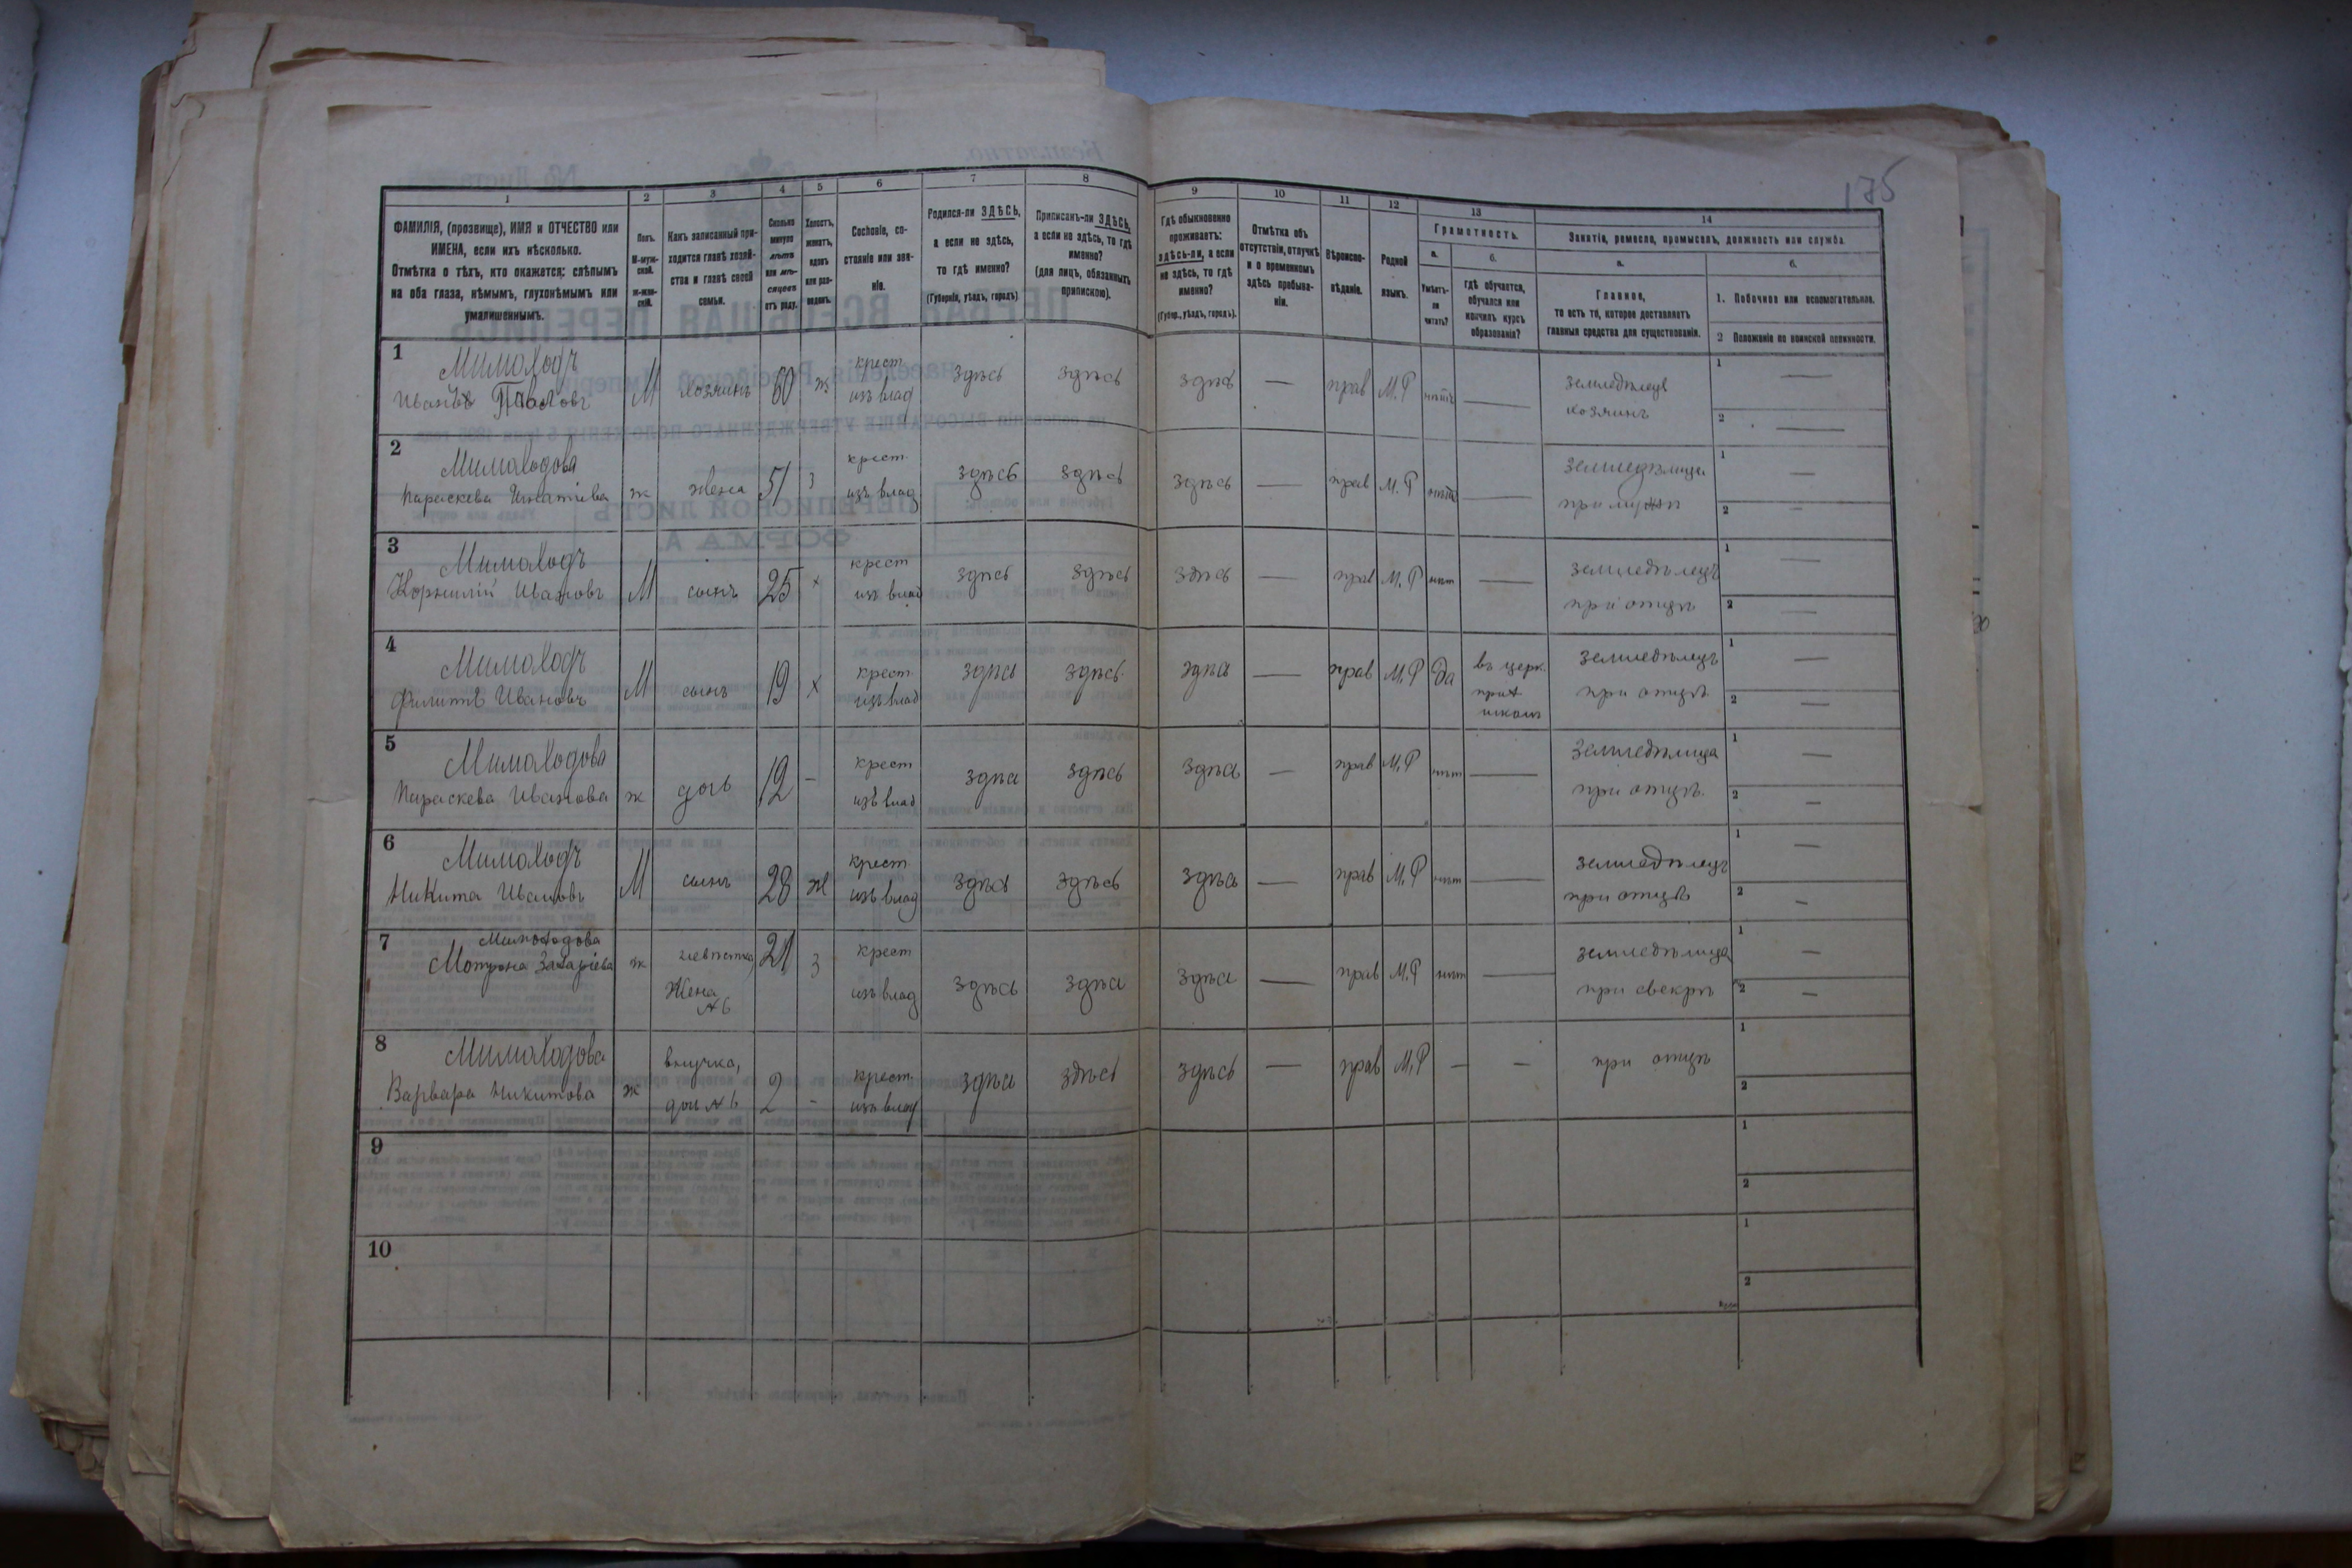 175
1 2 3 4 5 6 7 8 9 10 11 12 13 14
ФАМИЛІЯ, (прозвище), ИМЯ и ОТЧЕСТВО или
ИМЕНА, если ихъ нѣсколько.
Отмѣтка о тѣхъ, кто окажется: слѣпымъ
на оба глаза, нѣмымъ, глухонѣмымъ или
умалишеннымъ.
Полъ.
М-муж-
ской.
ж-жен-
скій.
Какъ записанный при-
ходится главѣ хозяй-
ства и главѣ своей
семьи.
Сколько
минуло
лѣтъ
или мѣ-
сяцевъ
отъ роду.
Холостъ,
женатъ,
вдовъ
или раз-
веденъ.
Сословіе, со-
стояніе или зва-
ніе.
Родился-ли ЗДѢСЬ,
а если не здѣсь,
то гдѣ именно?
(Губернія, уѣздъ, городъ)
Приписанъ-ли ЗДѢСЬ,
а если не здѣсь, то гдѣ
именно?
(для лицъ, обязанныхъ
припискою).
Гдѣ обыкновенно
проживаетъ:
здѣсь-ли, а если
не здѣсь, то гдѣ
именно?
(Губер., уѣздъ, городъ).
Отмѣтка объ
отсутствіи, отлучкѣ
и о временномъ
здѣсь пребыва-
ніи.
Вѣроиспо-
вѣданіе.
Родной
языкъ.
Грамотность.
а.
Умѣетъ-
ли
читать?
б.
гдѣ обучается,
обучался или
кончилъ курсъ
образованія?
Занятіе, ремесло, промыселъ, должность или служба.
а.
Главное,
то есть то, которое доставляетъ
главныя средства для существованія.
б.
1. Побочное или вспомогательное.
2 Положеніе по воинской повинности.
1 Мимоходъ крест земледѣлецъ 1 —
Иванъ Павловъ М хозяинъ 60 ж изъ влад здѣсь здѣсь здѣсь — прав М.Р нѣтъ — хозяинъ 2 —
2 Мимоходова крест. земледѣлица 1 —
Параскева Игнатіева ж жена 51 з изъ влад здѣсь здѣсь здѣсь — прав М.Р нѣтъ — при мужѣ 2 —
3 Мимоходъ крест земледѣлецъ 1 —
Корнилій Ивановъ М сынъ 25 х изъ влад здѣсь здѣсь здѣсь — прав М.Р нѣт — при отцѣ 2 —
4 Мимоходъ крест. въ церк. земледѣлецъ 1 —
Филиппъ Ивановъ М сынъ 19 х изъ влад здѣсь здѣсь здѣсь — прав М.Р Да при отцѣ 2 —
школѣ
5 Мимоходова крест земледѣлица 1 —
Параскева Иванова ж дочь 12 — изъ влад здѣсь здѣсь здѣсь — прав М.Р нѣт — при отцѣ. 2 —
6 Мимоходъ крест. земледѣлецъ 1 —
Никита Ивановъ М сынъ 28 ж изъ влад здѣсь здѣсь здѣсь — прав М.Р нѣт — при отцѣ 2 —
7 Мимоходова крест земледѣлица 1 —
Мотрона Захаріева ж невѣстка 21 з изъ влад здѣсь здѣсь здѣсь — прав М.Р нѣт — при свекрѣ 2 —
Жена
№ 6
8 Мимоходова внучка, при отцѣ 1
Варвара Никитова ж доч № 6 2 - крест. изъ влад здѣсь здѣсь здѣсь — прав М.Р — — 2
9 1
2
10 1
2